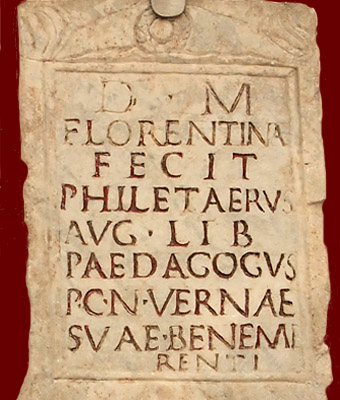 D · M
FLORENTINA
FECIT
PHILETAERVS
AVG · LIB
PAEDAGOGVS
P·C·N·VERNAE
SVAE·BENEME
RENTI